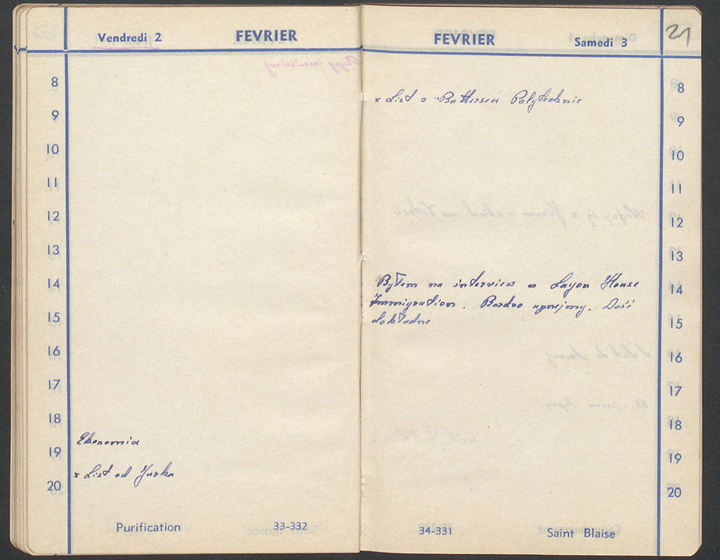 Vendredi 2
FEVRIER
8
9
10
11
12
13
14
15
16
17
18
19
20
Ekonomia
x List od Jurka
Purification
33-332
FEVRIER
Samedi 3
21
8
9
10
11
12
13
14
15
16
17
18
19
20
x List z Battersea Polytechnic
Byłem na interview w House
Immigration. Bardzo uprzejmy. Dość
dokładne
34-331
Saint Blaise